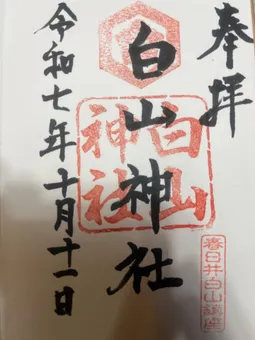 奉拝
白山神社
白山
神社
春日井白山鎮座
令和七年十月十一日